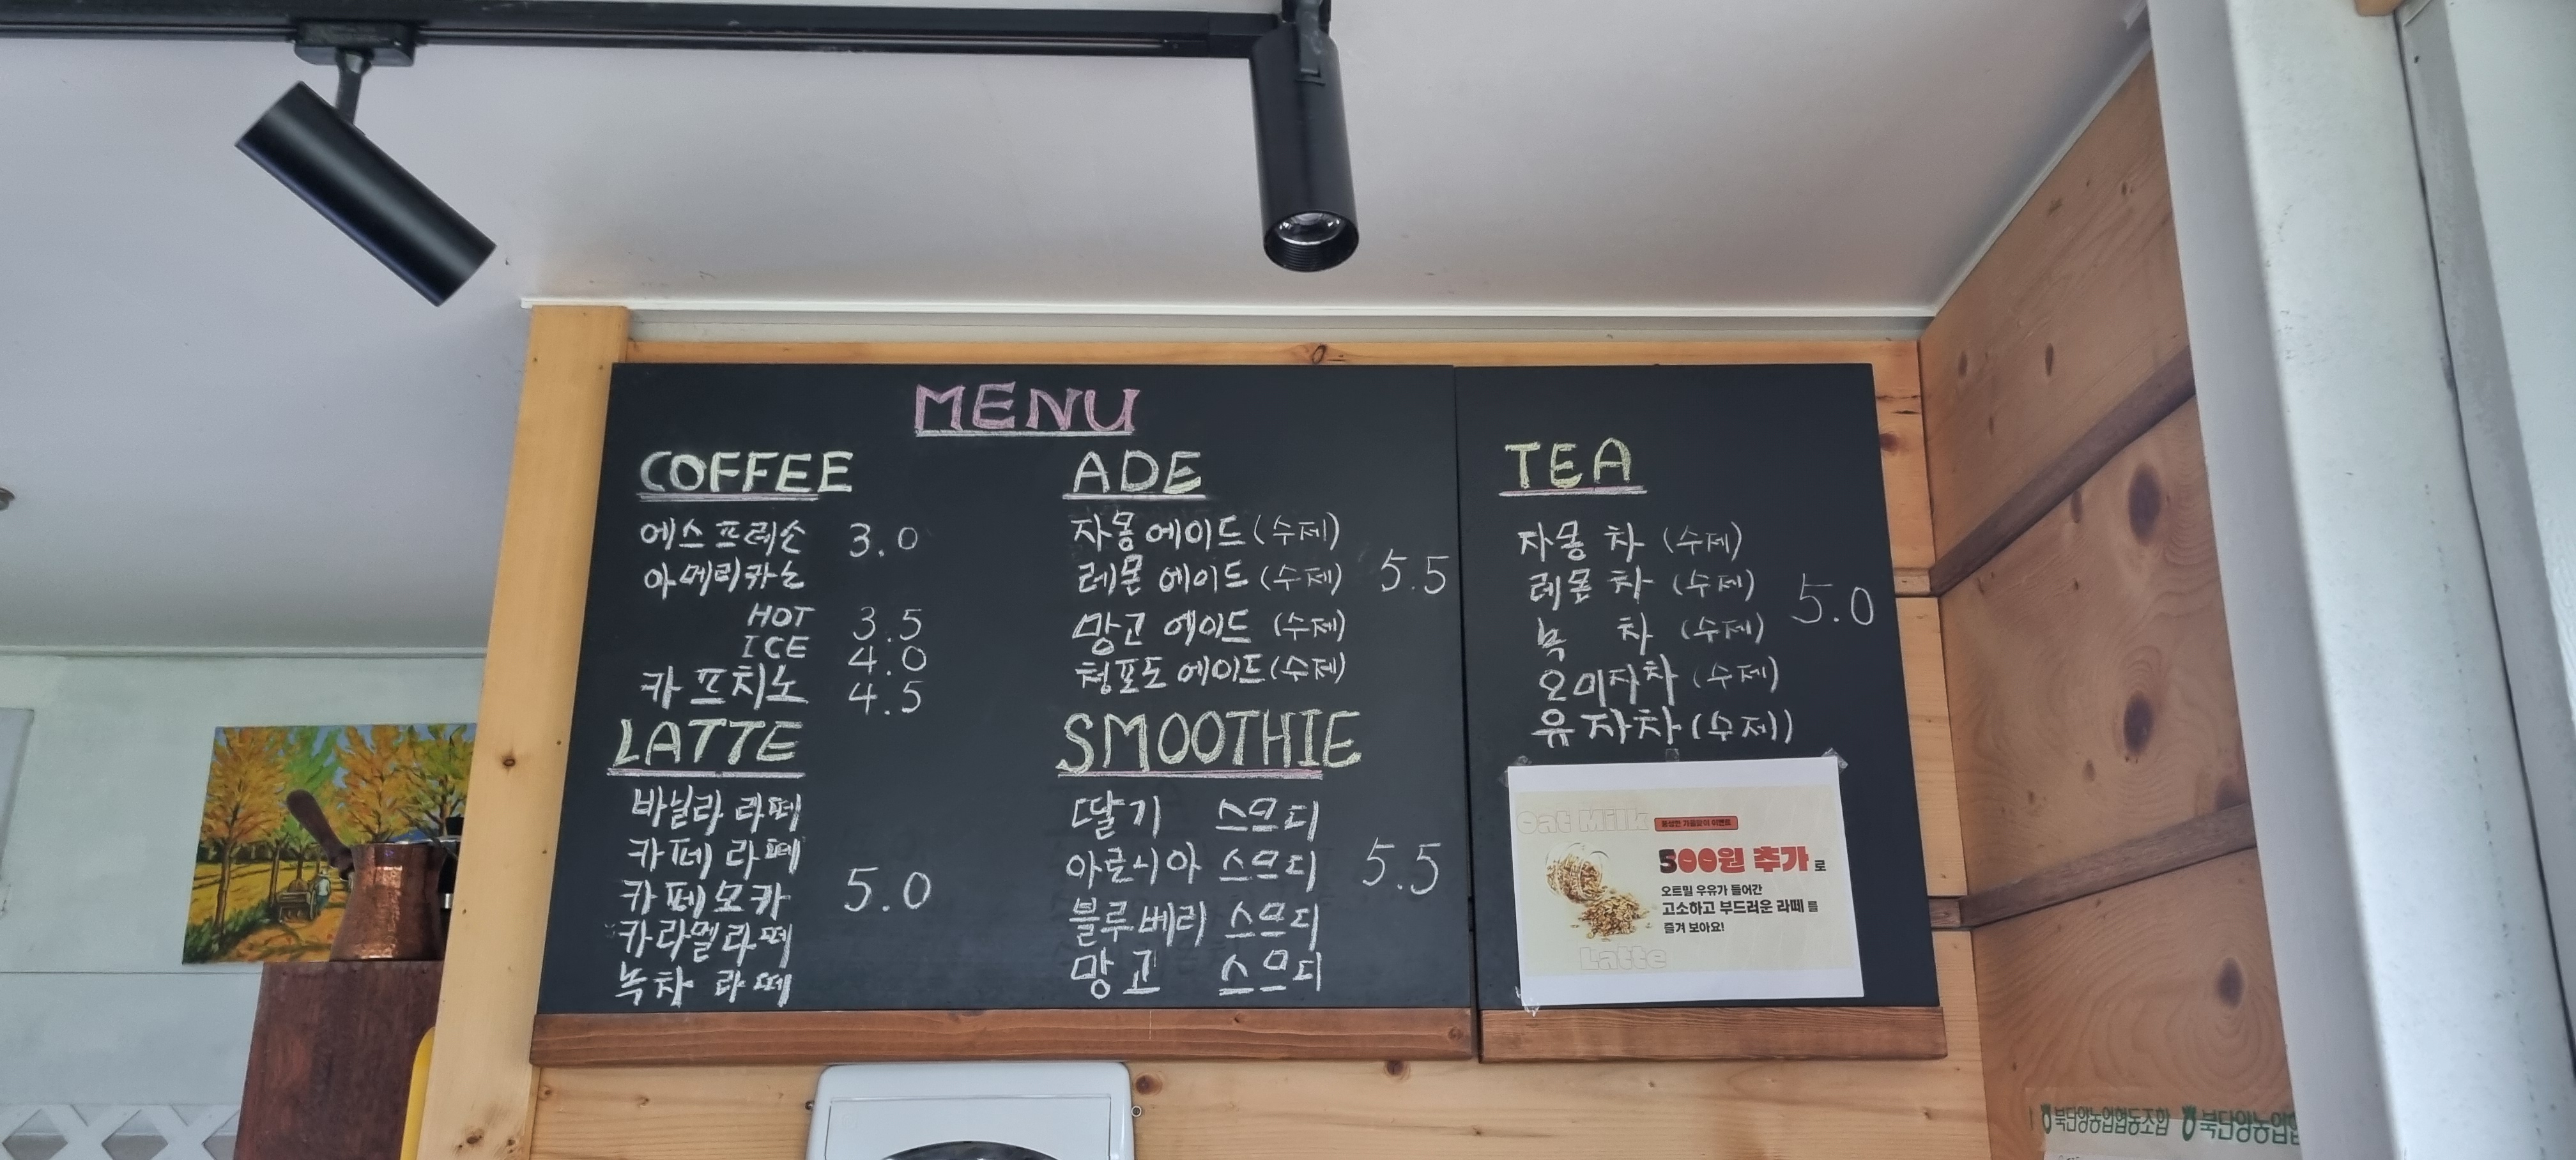 MENU
COFFEE
에스프레소 3.0
아메리카노
HOT 3.5
ICE 4.0
카프치노 4.5
LATTE
바닐라 라떼
카페 라떼
카페모카 5.0
카라멜라떼
녹차 라떼
ADE
자몽에이드(수제)
레몬 에이드 (수제) 5.5
망고 에이드 (수제)
청포도 에이드(수제)
SMOOTHIE
딸기 스므디
아로니아 스므디 5.5
블루베리 스므디
망고 스므디
TEA
자몽 차 (수제)
레몬 차 (수제) 5.0
녹 차 (수제)
오미자차 (수제)
유자차 (수제)
Oat Milk
500원 추가로
오트밀 우유가 들어간
고소하고 부드러운 라떼를
즐겨 보아요!
Latte
북단양농업협동조합 북단양농업협